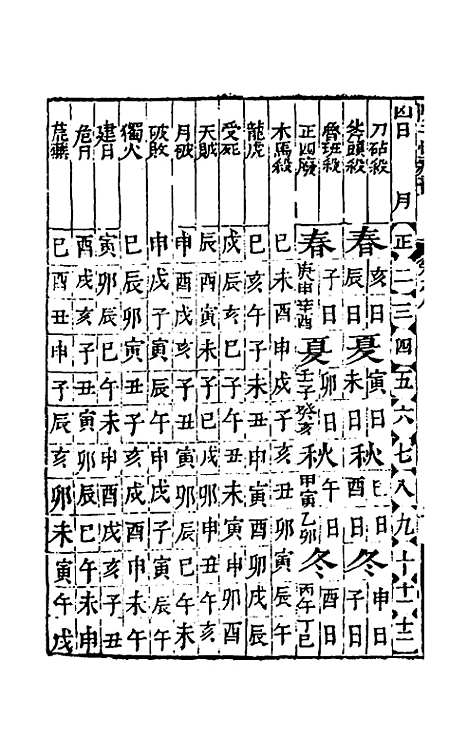 凶日 月 正 二 三 四 五 六 七 八 九 十 十一 十二
刀砧殺 春 亥日 夏 寅日 秋 巳日 冬 申日
斧頭殺 辰日 未日 酉日 子日
魯班殺 春 子日 夏 卯日 秋 午日 冬 酉日
正四廢 庚申辛酉 壬子癸亥 甲寅乙卯 丙午丁巳
木馬殺 巳 未 酉 申 戌 子 亥 丑 卯 寅 辰 午
龍虎 巳 亥 午 子 未 丑 申 寅 酉 卯 戌 辰
受死 戌 辰 亥 巳 子 午 丑 未 寅 申 卯 酉
天賊 辰 酉 寅 未 子 巳 戌 卯 申 丑 午 亥
月破 申 酉 戌 亥 子 丑 寅 卯 辰 巳 午 未
破敗 申 戌 子 寅 辰 午 申 戌 子 寅 辰 午
獨火 巳 辰 卯 寅 丑 子 亥 戌 酉 申 未 午
建日 寅 卯 辰 巳 午 未 申 酉 戌 亥 子 丑
危月 酉 戌 亥 子 丑 寅 卯 辰 巳 午 未 申
荒蕪 巳 酉 丑 申 子 辰 亥 卯 未 寅 午 戌